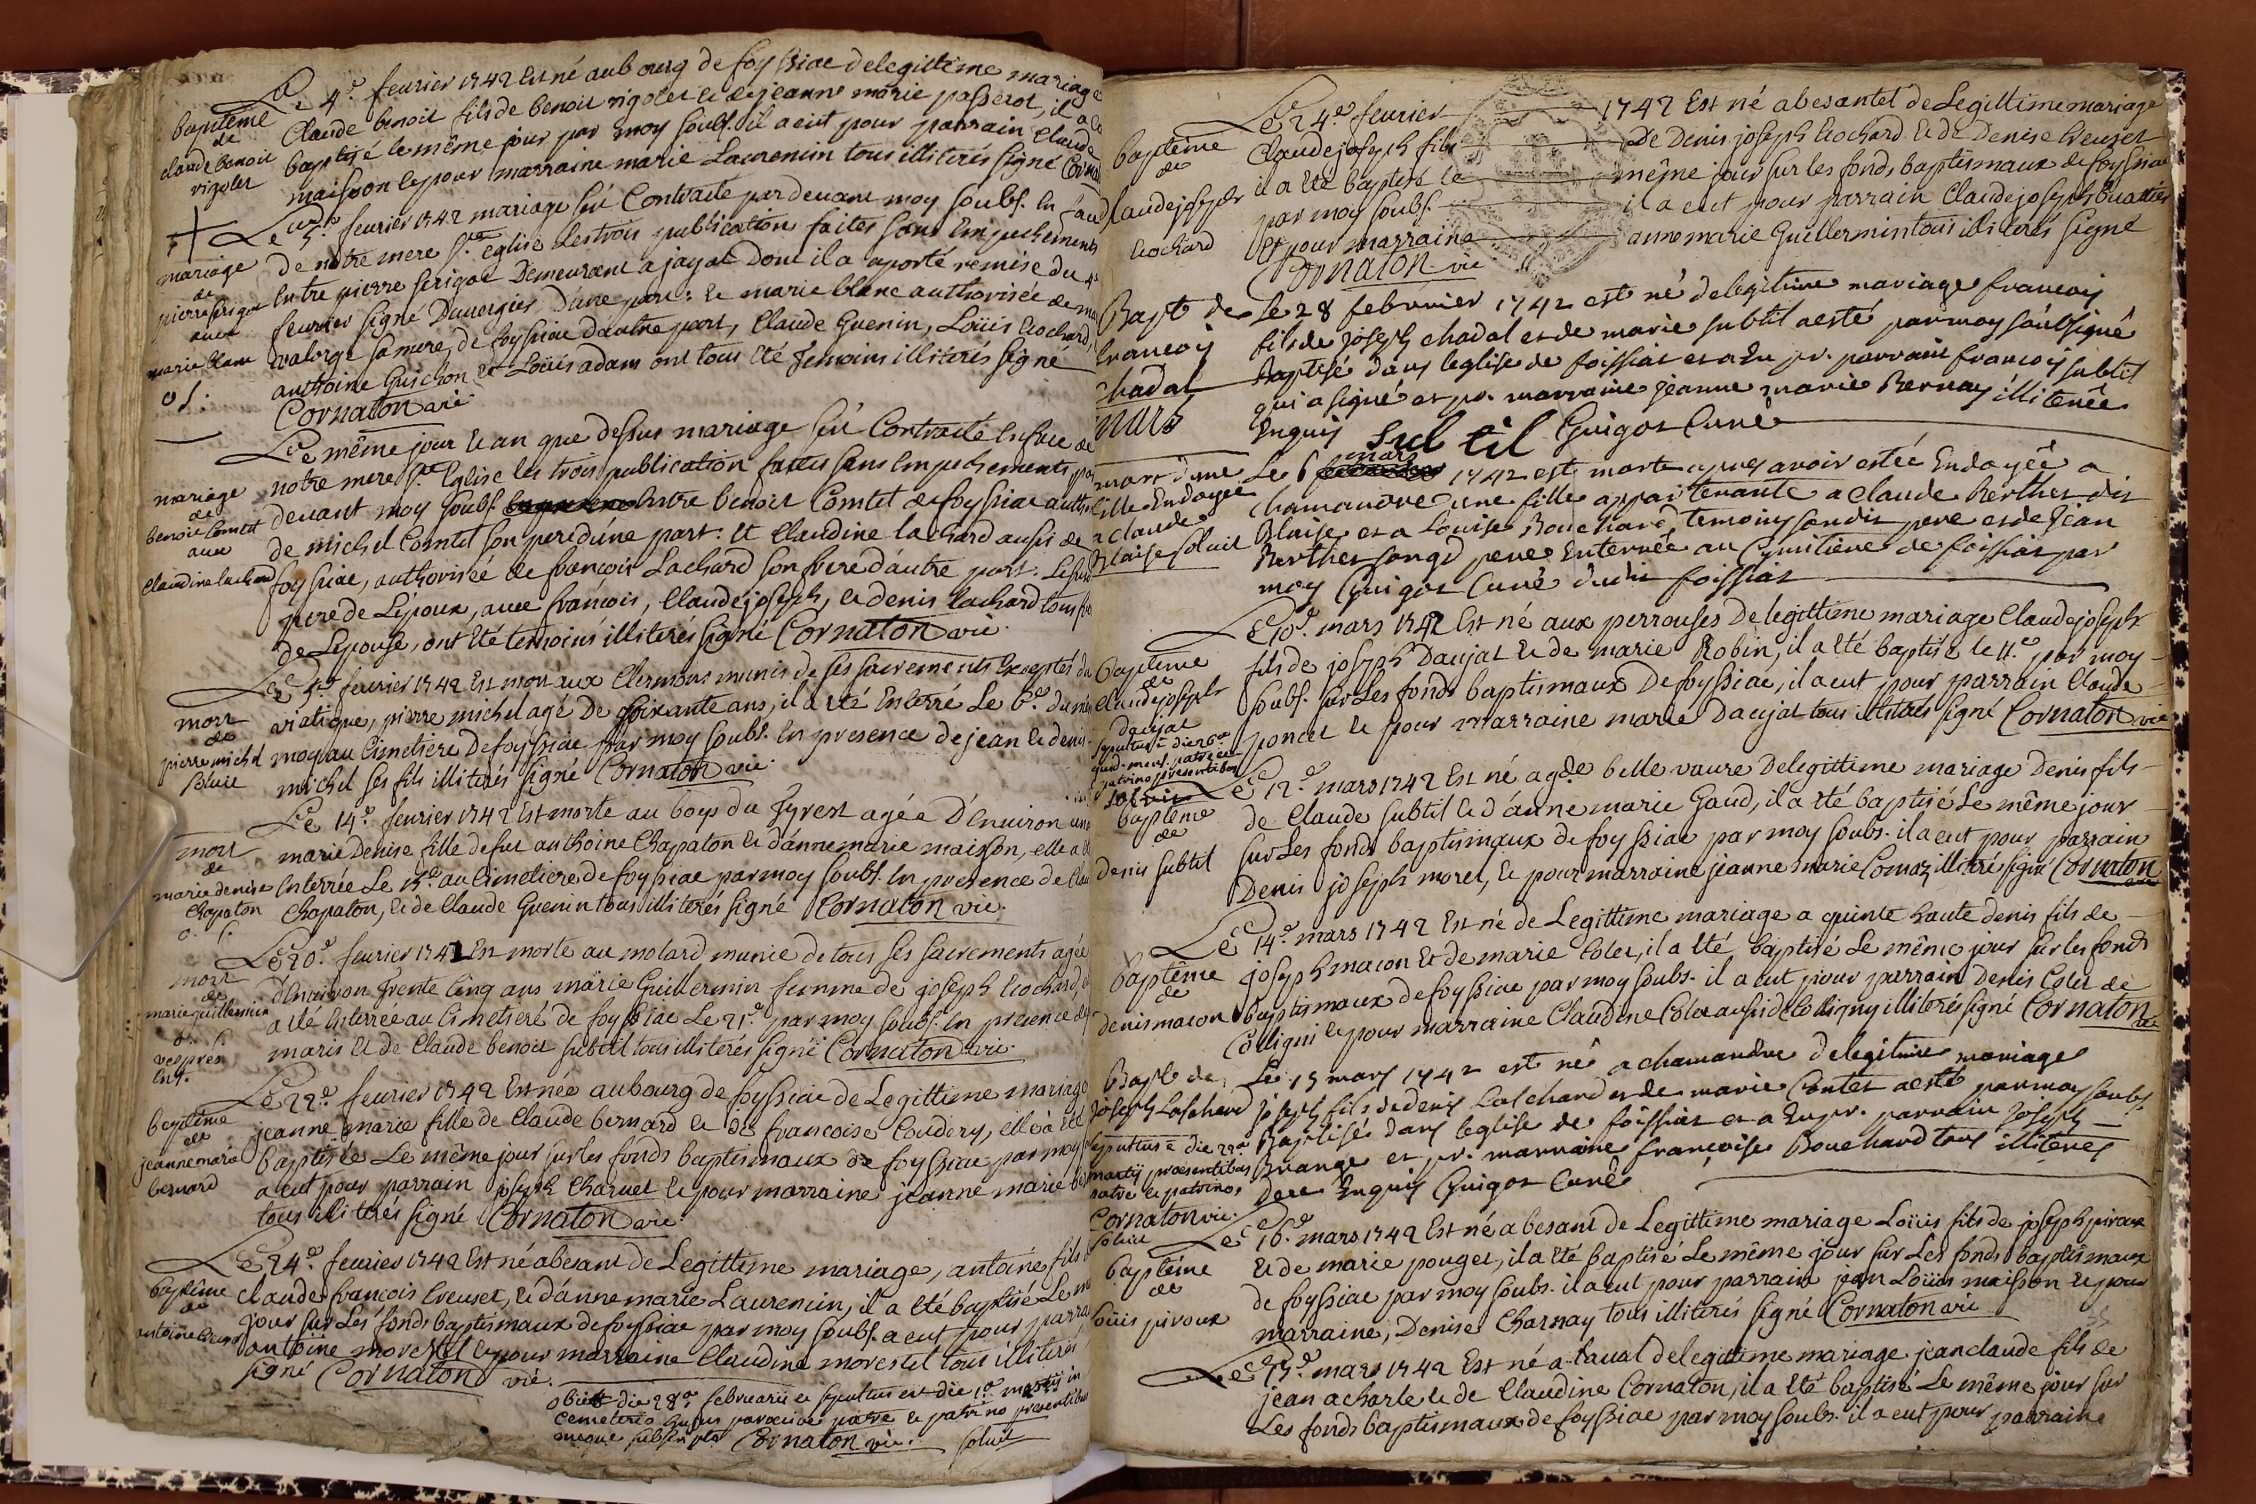 Le 4e. feurier 1742 Est né au bourg de foyssiac de legittime mariage
baptême
de
claude benoit
rigolet
Claude benoit fils de benoit rigolet et de jeanne marie passerot, il a
baptisé le même jour par moy soubs. il a eut pour parrain Claude
maisson et pour marraine marie Laurencin tous illiterés signé
Le feurier 1742 mariage fut Contracté par devant moy soubs. En
mariage
de
pierre perigat
avec
marie blanc
de notre mere ste. eglise les trois publications faites sans Empechements
Entre pierre perigat Demeurant a jayat Dont il a aporté remise du
feurier signé Dauergies d'une part: et marie blanc authorisée de
sa mere, de foyssiac d'autre part, Claude Guenin, Loüis Cochard,
anthoine Guichon et Loüis adam ont tous été temoins illiterés signé
Cornaton vic.
Le même jour et an que dessus mariage fut Contracté En face de
mariage
de
benoit Comtet
avec
Claudine Lachard
notre mere ste. Eglise les trois publication faittes sans Empechements
devant moy soubs. Entre benoit Comtet de foyssiac
de michel Comtet son pere d'une part: et Claudine Lachard aussi de
foyssiac, authorisée de francois Lachard son frere d'autre part:
pere de L'époux, avec francois, Claude joseph, et denis Lachard tous
de Lepouse, ont été temoins illiterés signé Cornaton vic.
Le feurier 1742 Est mort aux Clermons munis de ses sacrements Exceptés du
mort
de
pierre michel
solut
viatique, pierre michel agé De soixante ans, il a été Enterré Le 6e. du
au Cimetiere De foyssiac par moy soubs. En presence de jean et denis
michel ses fils illiterés signé Cornaton vic.
Le 14e. feurier 1742 Est morte au boys du Tyret agée D'Enuiron
mort
de
marie denise
Chapaton
marie Denise fille de feu anthoine Chapaton et d'anne marie maisson, elle a
Enterrée Le 15e. au Cimetiere de foyssiac par moy soubs. En presence de
Chapaton, et de Claude Guenin tous illiterés signé Cornaton vic.
Le 20e. feurier 1742 Est morte au molard munie de tous ses sacrements agée
mort
de
marie guillermin
d'Enuiron trente Cinq ans marie Guillermin femme de joseph Cochard,
a été Enterrée au Cimetieré de foyssiac Le 21e. par moy soubs. En presence
maris et de Claude benoit subtil tous illiterés signé Cornaton vic.
Le 22e. feurier 1742 Est née au bourg de foyssiac de Legittime mariage
baptême
de
jeanne marie
bernard
jeanne marie fille de Claude bernard et de francoise Coudery, elle a été
baptisée Le même jour sur les fonds baptismaux de foyssiac par moy
a eut pour parrain joseph Charuet et pour marraine jeanne marie
tous illiterés signé Cornaton vic.
Le 24e. feurier 1742 Est né a besant de Legittime mariage, antoine fils
baptême
de
antoine Creuset
claude francois Creuset, et d'anne marie Laurencin, il a été baptisé Le
jour sur Les fonds baptismaux de foyssiac par moy soubs. a eut pour
antoine morestel et pour marraine Claudine morestel tous illiterés
signé Cornaton vic.
Obiit die 28a. februarii et sepultus est die 1a. martii in
cemeterio huius parociae patre et patrino presentibus
meque subscripto Cornaton vic. solut
Le 24e. feurier 1742 Est né a besantet de Legittime mariage
baptême
de
Claude joseph
Cochard
Claude joseph fils De Denis joseph Cochard et de Denise Creuset
il a été baptisé le même jour sur les fonds baptismaux de foyssiac
par moy soubs. il a eut pour parrain Claude joseph
et pour marraine anne marie Guillermin tous illiterés signé
Cornaton vic
Bapt de
francois
chadal
Le 28 februier 1742 est né de legitime mariage francois
fils de joseph chadal et de marie subtil a esté par moy soubsigné
baptisé dans leglise de foissiat et a eu pr. parrain francois subtil
qui a signé et pr. marraine jeanne marie Bernay illiterée
Enquis Subtil Guigot Curé
mars
mort d'une
fille Endoyée
a claude
Blaise solvit
Le 6 mars 1742 est morte apres avoir estée Endoyée a
chamandre une fille appartenante a Claude Berthet dit
Blaise et a Louise Bouchard, temoins sondit pere et de Jean
Berthet son gd pere Enterrée au Cymitiere de foissiat par
moy Guigot Curé dudit foissiat
Le 10e. mars 1742 Est né aux perrouses De legittime mariage Claude joseph
baptême
de
Claude joseph
Daujat
fils de joseph Daujat et de marie Robin, il a été baptisé le 11e. par moy
soubs. sur Les fonds baptismaux De foyssiac, il a eut pour parrain Claude
poncet et pour marraine marie Daujat tous illiterés signé Cornaton vic
Le 12e. mars 1742 Est né a belle vavre De legittime mariage Denis fils
baptême
de
Denis subtil
de Claude subtil et d'anne marie Gaud, il a été baptisé Le même jour
sur Les fonds baptismaux de foyssiac par moy soubs. il a eut pour parrain
Denis joseph morel, et pour marraine jeanne marie Comaz illiterés signé Cornaton
Le 14e. mars 1742 Est né de Legittime mariage a quinte haute denis fils de
baptême
de
denis macon
joseph macon et de marie Colet, il a été baptisé Le même jour sur les fonds
baptismaux de foyssiac par moy soubs. il a eut pour parrain Denis Colet de
Colligni et pour marraine Claudine Colet aussi de Colligny illiterés signé Cornaton vic
Bapt de
joseph Laschard
Le 15 mars 1742 est né a chamandre de legitime mariage
joseph fils de denis Laschard et de marie Contet a esté par moy soubs.
Baptisé dans leglise de foissiat et a eu pr. parrain joseph
et pr. marraine francoise Bouchard tous illiterés
Enquis Guigot Curé
sepultus e die 22a
martii praesentibus
patre et patrino
Cornaton vic.
solut
Le 16e. mars 1742 Est né a besant de Legittime mariage Loüis fils de joseph piroux
baptême
de
Loüis piroux
et de marie pouget, il a été baptisé Le même jour sur Les fonds baptismaux
de foyssiac par moy soubs. il a eut pour parrain jean Loüis maisson et pour
marraine, Denise Charnay tous illiterés signé Cornaton vic
Le mars 1742 Est né a Laual de legittime mariage jean claude fils de
jean acharle et de Claudine Cornaton, il a été baptisé Le même jour sur
Les fonds baptismaux de foyssiac par moy soubs. il a eut pour parraine